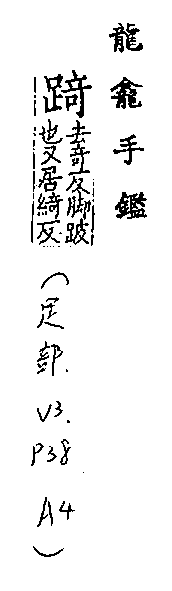 龍龕手鑑
踦
去奇反脚跛
也又居綺反
（足部.
V3.
P38
A4
）